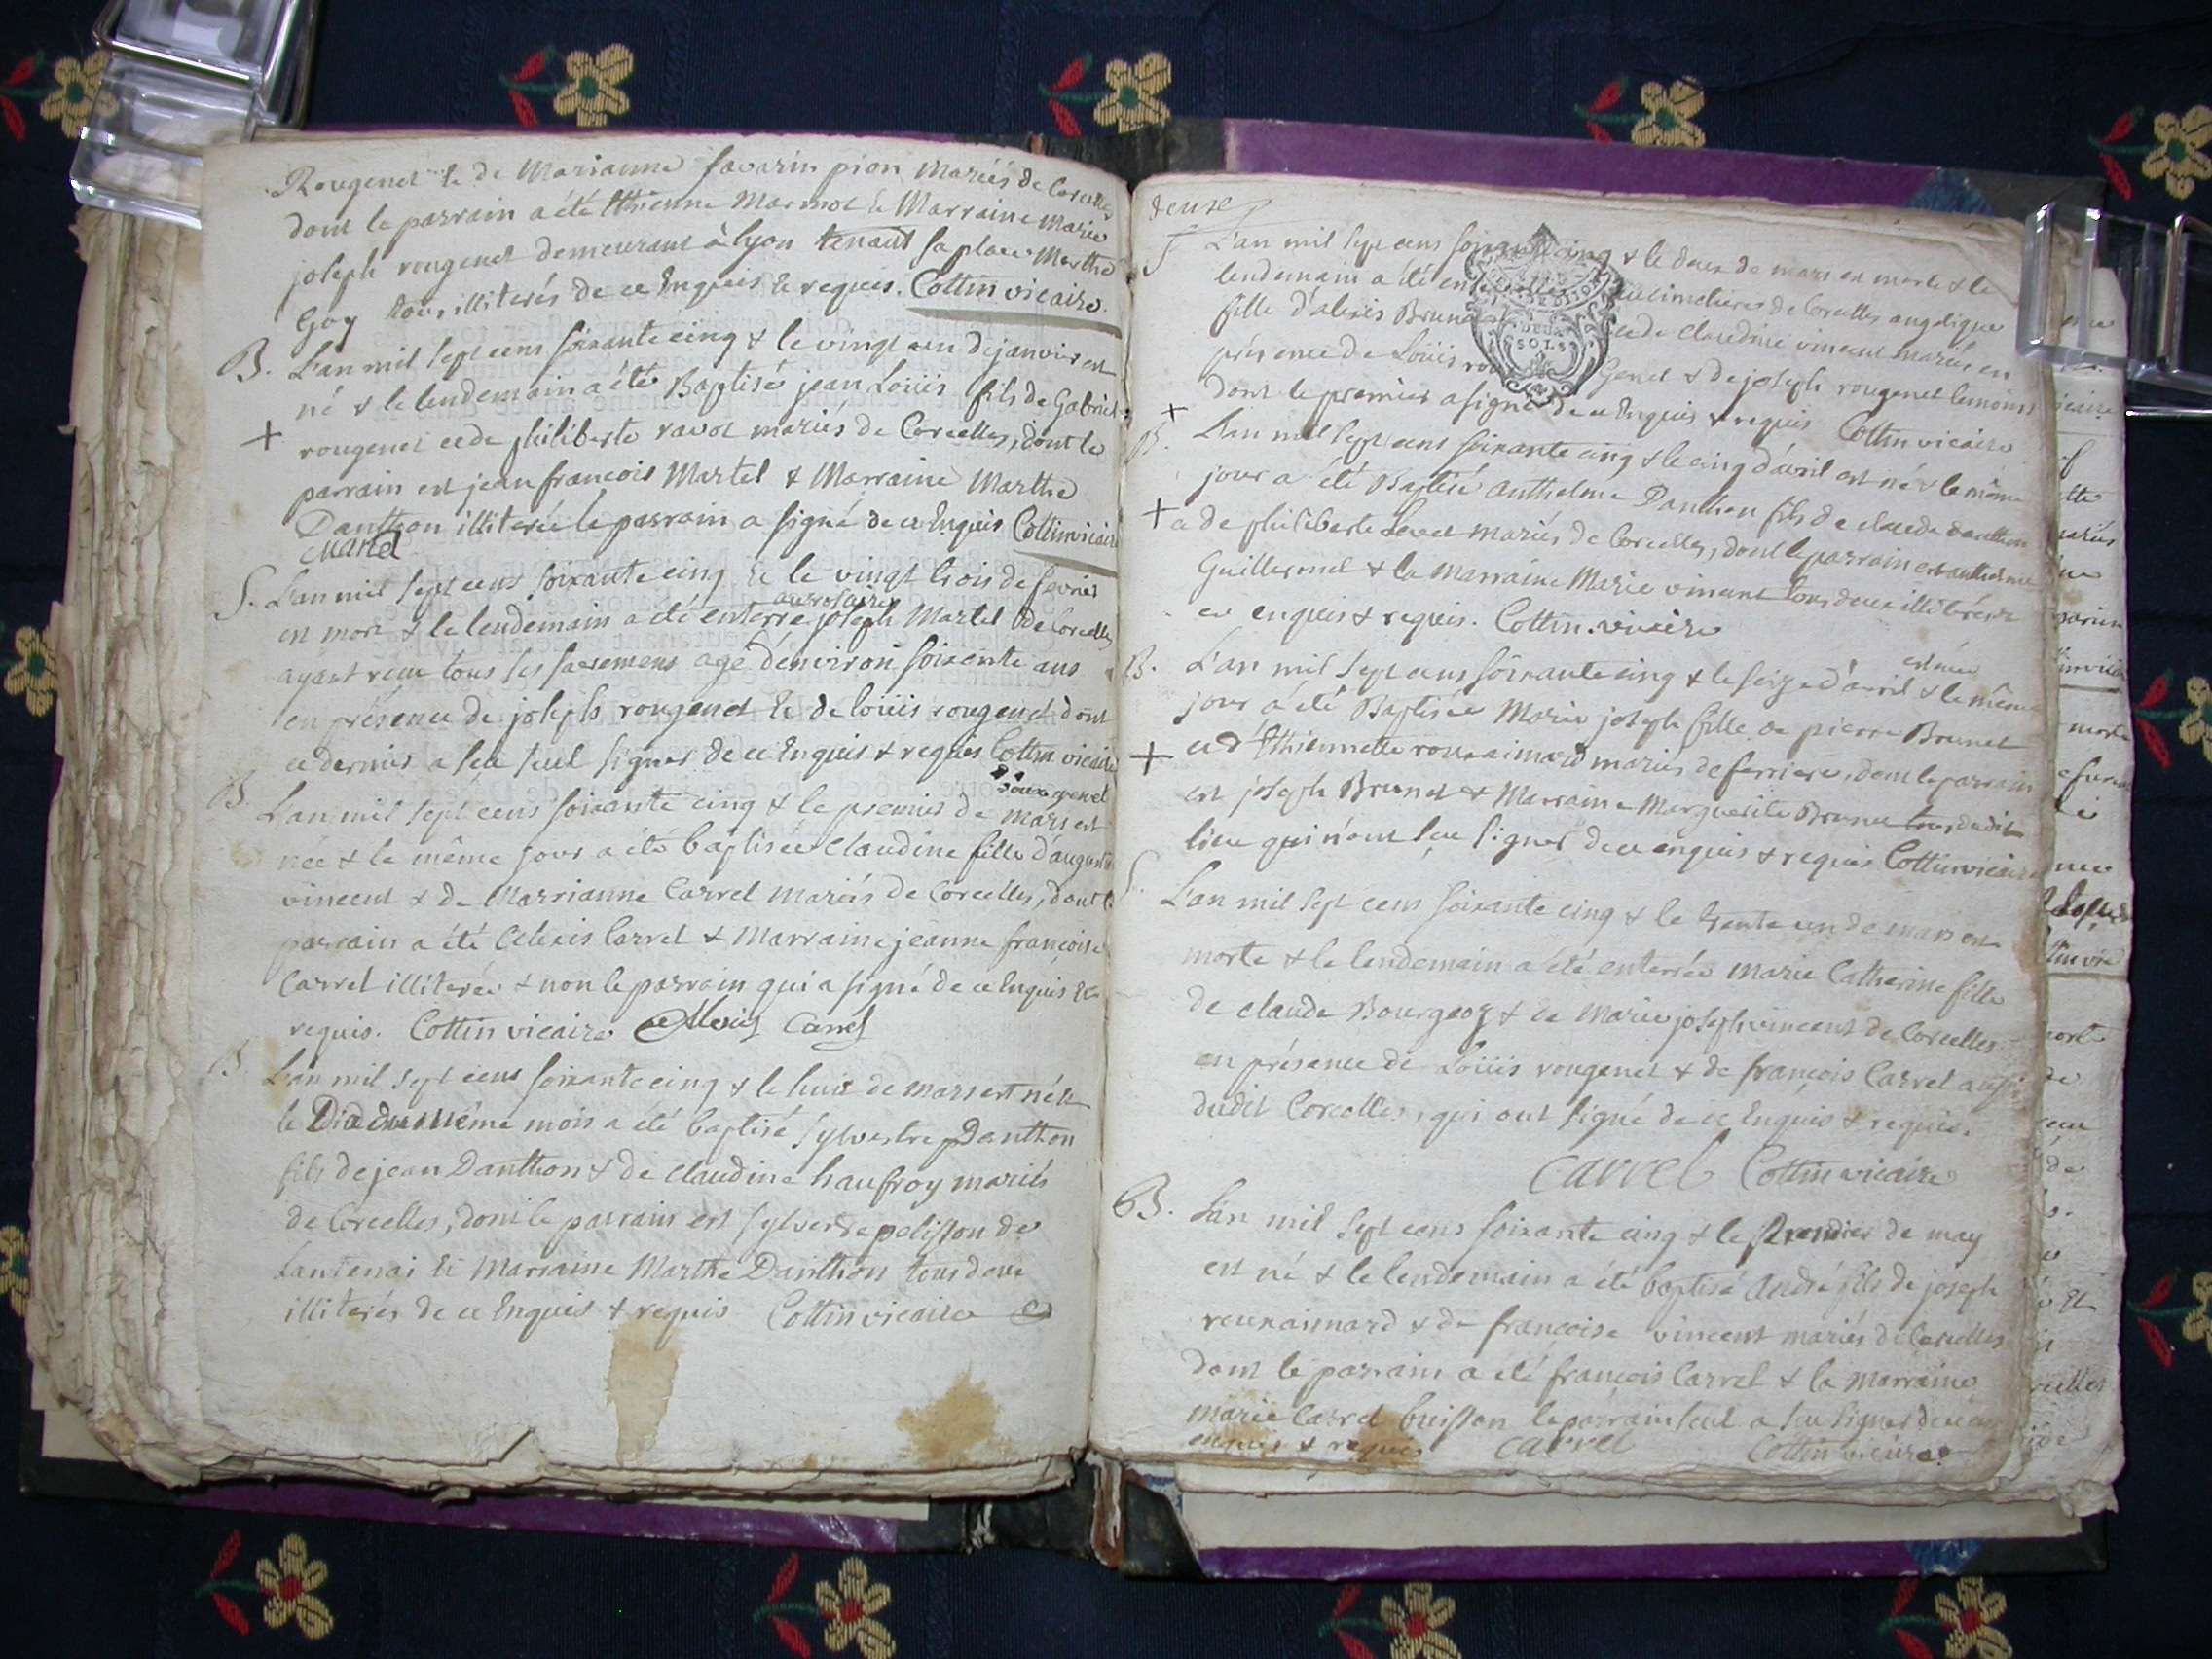 Rougenet & de Marianne Savarin pion Mariés de Corcelles
dont le parrain a été Ethienne Marmot & Marraine Marie
joseph rougenet demeurant à lyon tenant sa place Marthe
Goy tous illiterés de ce Enquis & requis. Cottin vicaire
B. L'an mil sept cens soixante cinq & le vingt un de janvier est
né & le lendemain a été Baptisé jean Loüis fils de Gabriel
+ rougenet et de philiberte ravot mariés de Corcelles, dont le
parrain est jean francois Martel & Marraine Marthe
Danthon illiterée le parrain a signé de ce Enquis Cottin vicaire
Martel
S. L'an mil sept cens soixante cinq & le vingt trois de fevrier
au rosaire
est mort & le lendemain a été enterré joseph Martel de Corcelles
ayant reçu tous ses sacremens agé d'environ soixante ans
en présence de joseph rougenet & de loüis rougenet dont
ce dernier a sçu seul signer de ce Enquis & requis Cottin vicaire
Rougenet
B. L'an mil sept cens soixante cinq & le premier de mars est
née & le même jour a été baptisée Claudine fille d'augustin
vincent & de Marrianne Carrel mariés de Corcelles, dont le
parrain a été Alexis Carrel & Marraine jeanne françoise
Carrel illiterée & non le parrain qui a signé de ce Enquis &
requis. Cottin vicaire Alexis Carrel
B L'an mil sept cens soixante cinq & le huit de mars est né &
le Dix du même mois a été baptisé sylvestre Danthon
fils de jean Danthon & de Claudine haufroy mariés
de Corcelles, dont le parrain est sylvestre pelisson de
Lantenai & Marraine Marthe Danthon tous deux
illiterés de ce Enquis & requis Cottin vicaire
deuxe
S L'an mil sept cens soixante cinq & le deux de mars est morte & le
lendemain a été cimetiere de Corcelles angelique
fille d'alexis Brunet et de Claudine vincent mariés en
présence de Loüis Genet & de joseph rougenet temoins
DEUX SOLS
dont le premier a signé de ce Enquis & requis Cottin vicaire
+
B. L'an mil sept cens soixante cinq & le cinq d'avril est né & le même
jour a été Baptisé Anthelme Danthon fils de claude danthon
+ & de philiberte Levet mariés de Corcelles, dont le parrain est anthelme
Guillermel & la Marraine Marie vincent tous deux illiterés de
ce enquis & requis. Cottin vicaire
est née
B. L'an mil sept cens soixante cinq & le seize d'avril & le même
jour a été Baptisée Marie joseph fille de pierre Brunet
+ et d'Ethiennette rouxaimard mariés de ferriere, dont le parrain
est joseph Brunet & Marraine Marguerite Brunet tous dudit
lieu qui n'ont sçu signer de ce enquis & requis Cottin vicaire
S. L'an mil sept cens soixante cinq & le trente un de mars est
morte & le lendemain a été enterrée Marie Catherine fille
de claude Bourgeoz & de Marie joseph vincent de Corcelles
en présence de Loüis rougenet & de françois Carrel aussi
dudit Corcelles, qui ont signé de ce Enquis & requis.
Carrel Cottin vicaire
B. L'an mil sept cens soixante cinq & le Premier de may
est né & le lendemain a été baptisé André fils de joseph
rouxaimard & de françoise vincent mariés de Corcelles
dont le parrain a été françois Carrel & la Marraine
marie Carrel buisson le parrain seul a sçu signer de ce
enquis & requis Carrel Cottin vicaire